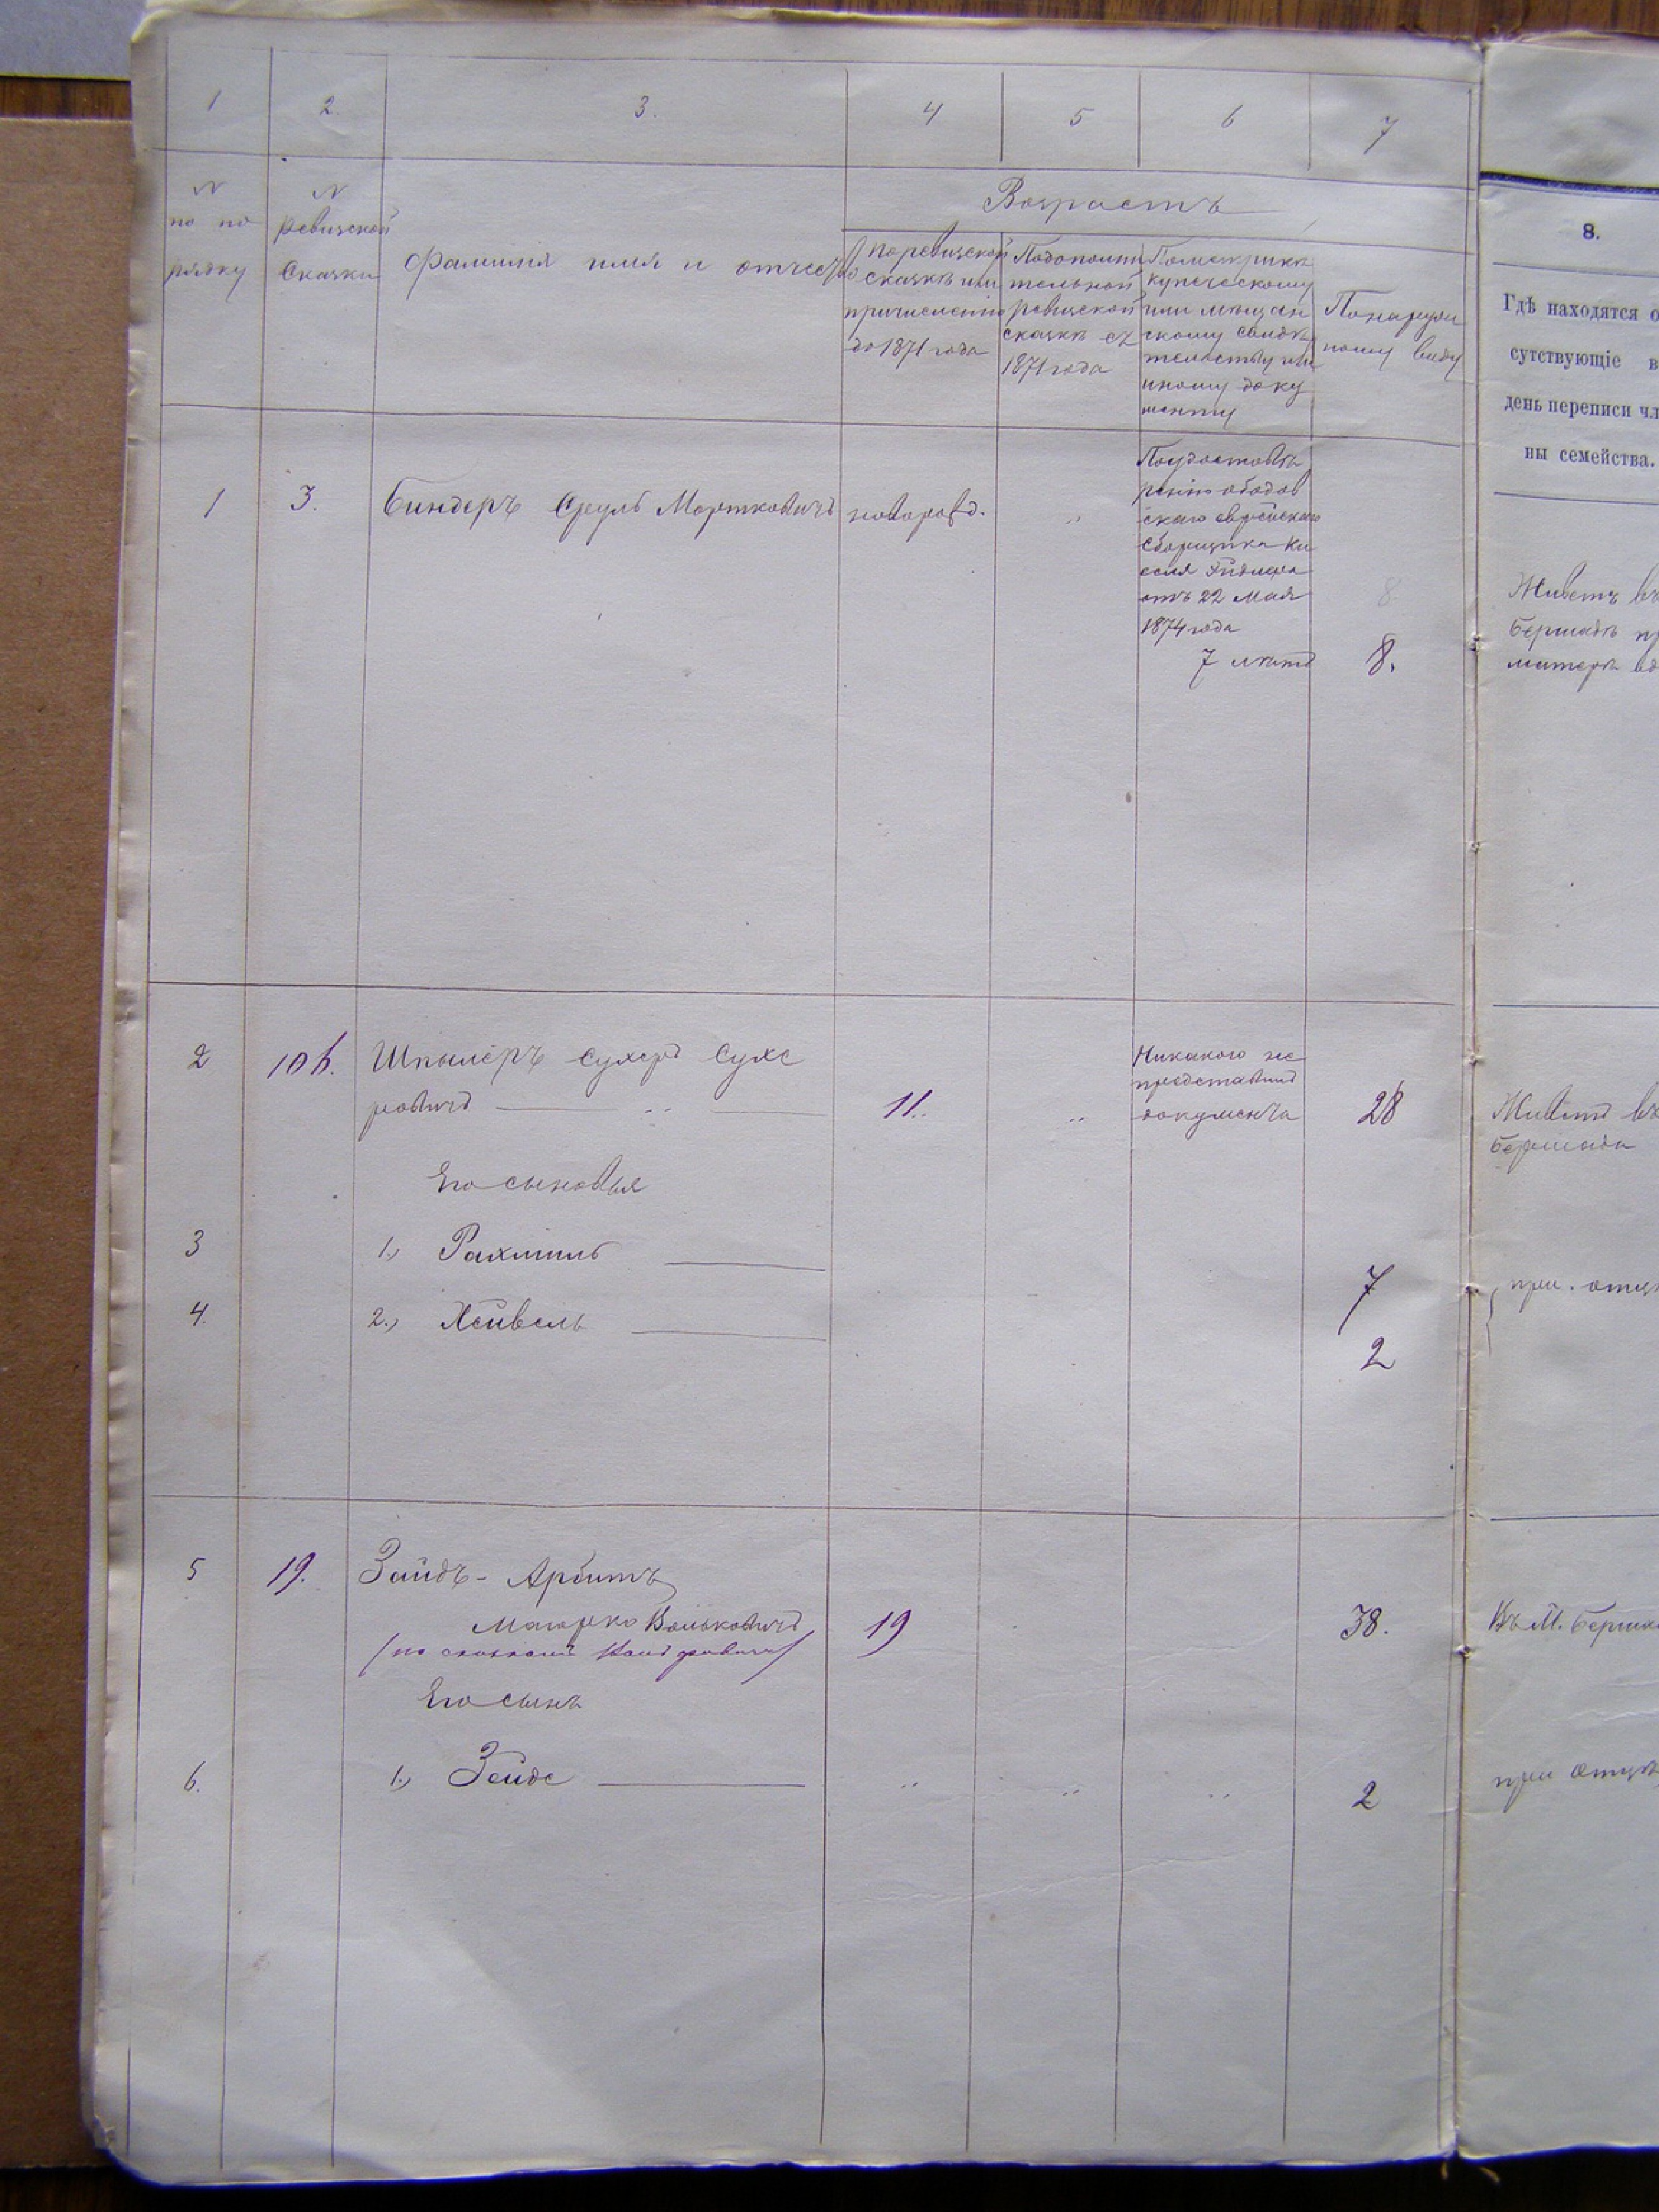 1 2. 3. 4 5 6 7
N
по по
рядку
N
ревизской
Сказки
Фамилия имя и отчество
Возрастъ
По ревизской
сказкѣ или
причисленію
до 1871 года
По дополни
тельной
ревизской
сказкѣ съ
1871 года
По метрикѣ
купеческому
или мѣщан
скому свидѣ
тельству или
иному доку
менту
По наруж
ному виду
8.
Гдѣ находятся о
сутствующіе в
день переписи чл
ны семейства.
1 3. Биндеръ Сруль Мортковичъ новорожд. „
По удостовѣ
ренію ободов
скаго еврейскаго
сборщика Ки
селя
отъ 22 Мая
1874 года
7 лѣтъ
8
8.
Живетъ въ
Бершадѣ пр
матери вд
2 10 б. Шпилеръ Сухеръ Сухе
ровичъ „ 11. „
Никакого не
представилъ
документа
28
Живетъ въ
Бершадѣ
Его сыновья
3 1., Рахмиль 7
4. 2., Хейвель 2
при отцѣ
5 19. Зайдъ - Арбитъ
Маюрко Волько­вичъ 19 38. Въ М. Берша
Его сынъ
6. 1., Зейде „ „ „ 2 при отцѣ